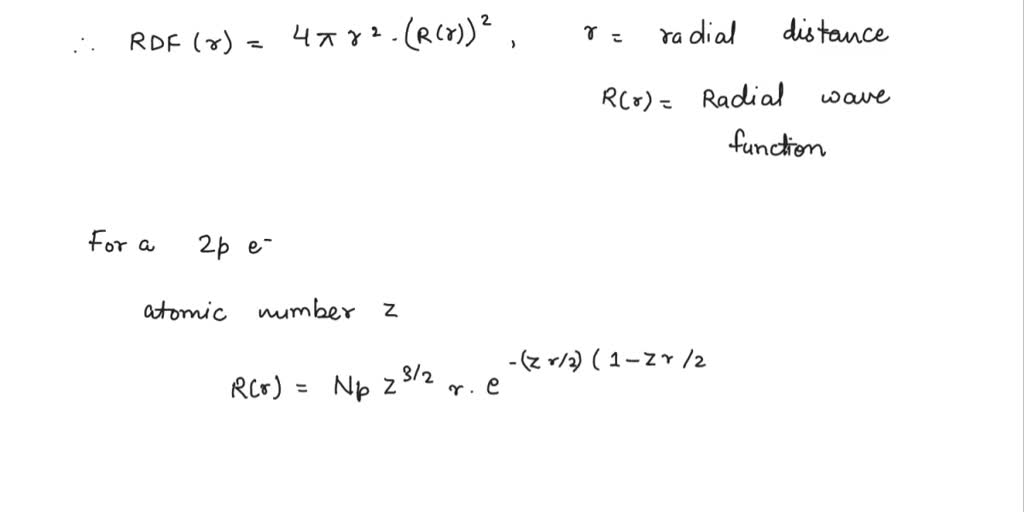 ∴ RDF (r) = 4π r². (R(r))², r = radial distance
R(r) = Radial wave
function
For a 2p e⁻
atomic number z
R(r) = Np z^3/2 r. e^-(z r/2) (1-zr/2